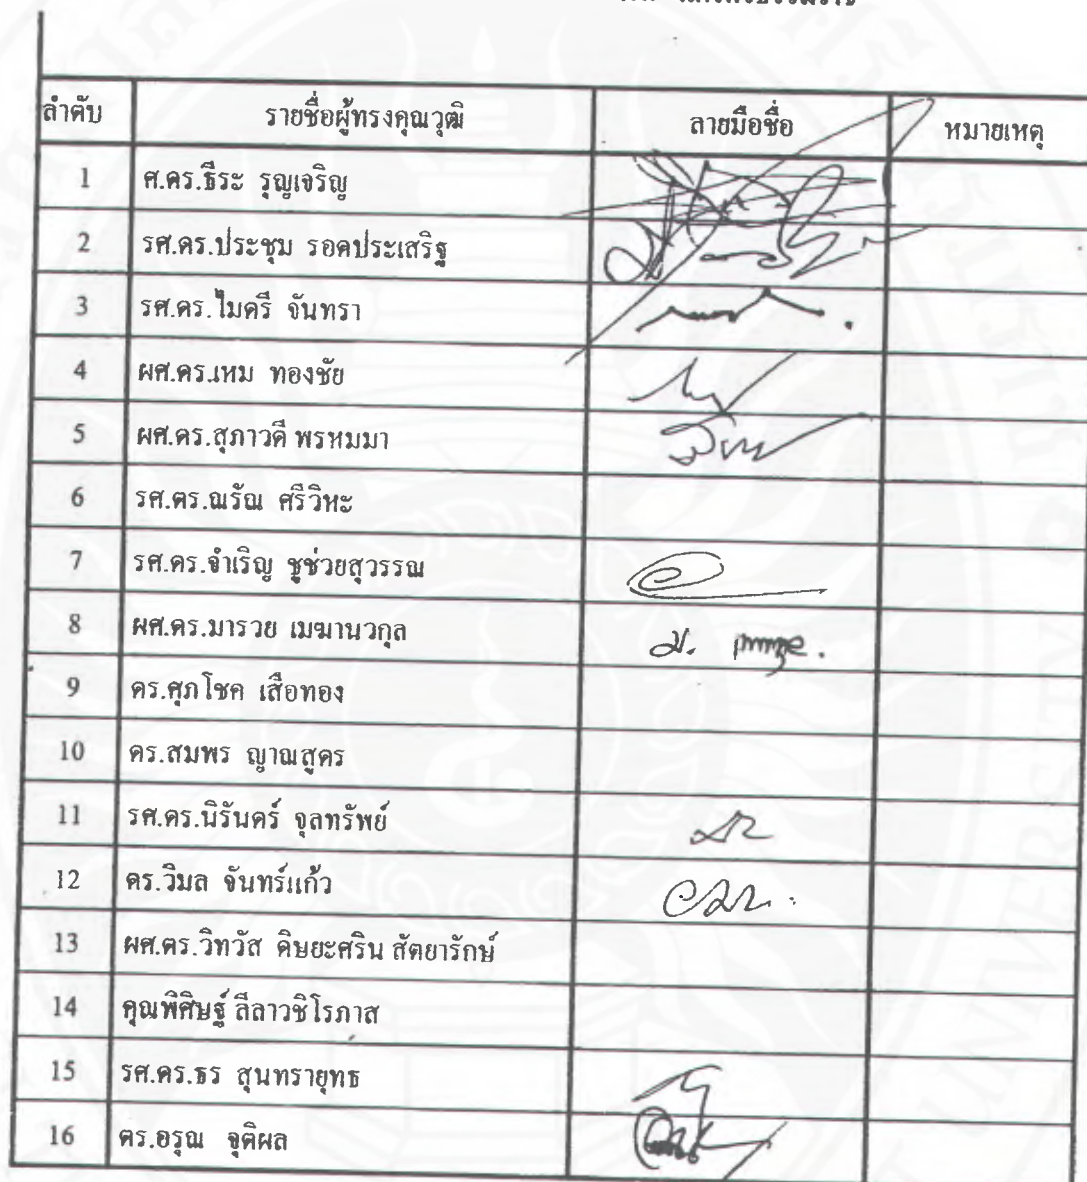 ลำดับ รายชื่อผู้ทรงคุณวุฒิ ลายมือชื่อ หมายเหตุ
1 ศ.ดร.ธีระ รุญเจริญ
2 รศ.ดร.ประชุม รอดประเสริฐ
3 รศ.ดร.ไมตรี จันทรา
4 ผศ.ดร.เหม ทองชัย
5 ผศ.ดร.สุภาวดี พรหมมา
6 รศ.ดร.ณรัณ ศรีวิหะ
7 รศ.ดร.จำเริญ ชูช่วยสุวรรณ
8 ผศ.ดร.มารวย เมฆานวกุล
9 ดร.ศุภโชค เสือทอง
10 ดร.สมพร ญาณสูตร
11 รศ.ดร.นิรันดร์ จุลทรัพย์
12 ดร.วิมล จันทร์แก้ว
13 ผศ.ดร.วิทวัส ดิษยะศริน สัตยารักษ์
14 คุณพิศิษฐ์ ลีลาวชิโรภาส
15 รศ.ดร.ธร สุนทรายุทธ
16 ดร.อรุณ จุติผล